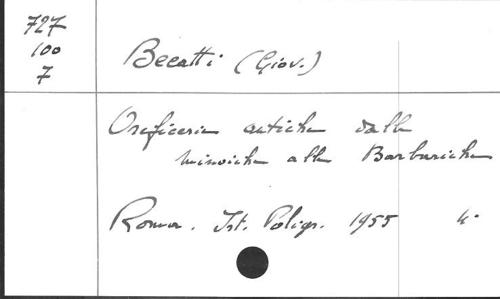 727
100
7
Becatti (Giov.)
Oreficerie antiche dalle
minoiche alle Barbariche
Roma. Ist. Poligr. 1955 4°